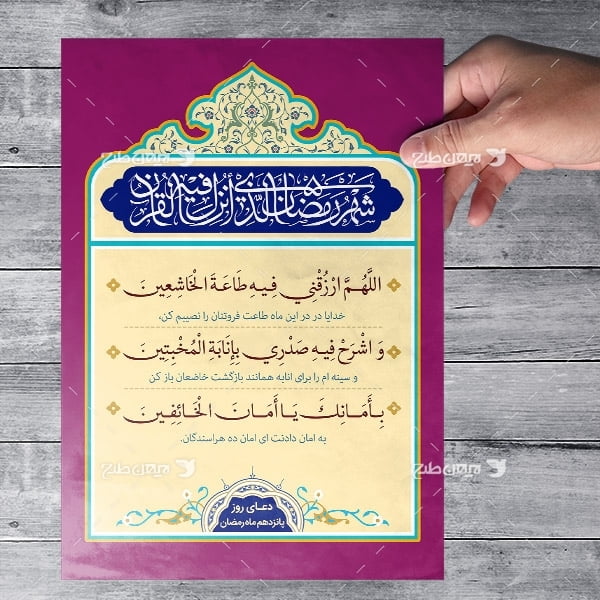 شَهْرُ رَمَضَانَ الَّذِي أُنْزِلَ فِيهِ الْقُرْآنُ
اللَّهُمَّ ارْزُقْنِي فِيهِ طَاعَةَ الْخَاشِعِينَ
خدایا در در این ماه طاعت فروتنان را نصیبم کن،
وَ اشْرَحْ فِيهِ صَدْرِي بِإِنَابَةِ الْمُخْبِتِينَ
و سینه ام را برای انابه همانند بازگشت خاضعان باز کن
بِأَمَانِكَ يَا أَمَانَ الْخَائِفِينَ
به امان دادنت ای امان ده هراسندگان.
دعـای روز
پانزدهم ماه رمضان